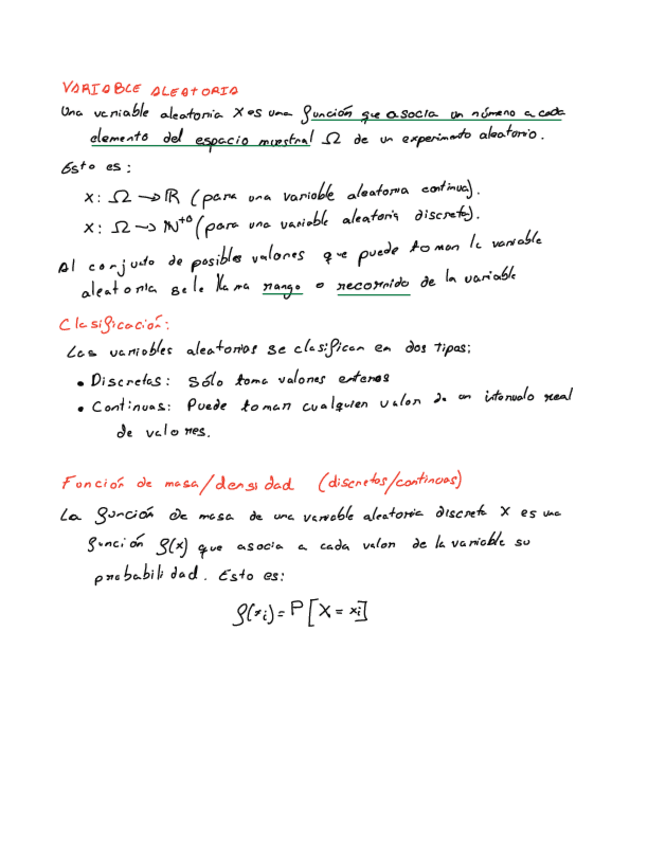 VARIABLE ALEATORIA
Una variable aleatoria X es una función que asocia un número a cada
elemento del espacio muestral Ω de un experimento aleatorio.
Esto es:
X: Ω → ℝ (para una variable aleatoria continua).
X: Ω → ℕ⁺⁰ (para una variable aleatoria discreta).
Al conjunto de posibles valores que puede tomar la variable
aleatoria se le llama rango o recorrido de la variable
Clasificación:
Las variables aleatorias se clasifican en dos tipos:
• Discretas: Sólo toma valores enteros
• Continuas: Puede tomar cualquier valor de un intervalo real
de valores.
Función de masa/densidad (discretas/continuas)
La función de masa de una variable aleatoria discreta X es una
función f(x) que asocia a cada valor de la variable su
probabilidad. Esto es:
f(xᵢ) = P[X = xᵢ]